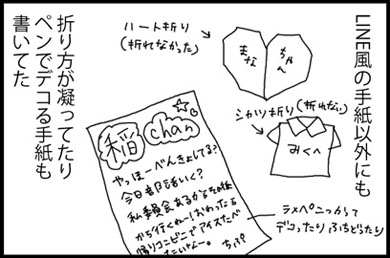 LINE風の手紙以外にも
ハート折り
(折れなかった)
まな
ちゃへ
シャツ折り(折れない)
みくへ
稲chan
やっほーべんきょしてる?
今日部活いく?
私委員会あるからその後
から行くねー!おわったら
帰りコンビニでアイスたべ
たいなー。
ちぷ
ラメペンつかって
デコったりふちどったり
折り方が凝ってたり
ペンでデコる手紙も
書いてた